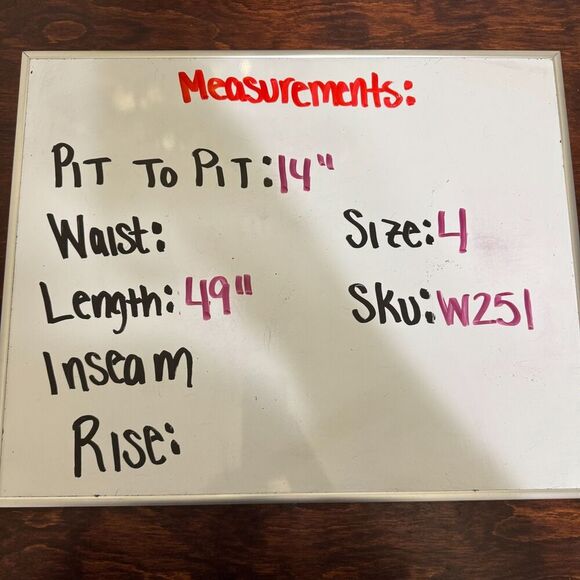 Measurements:
PIT TO PIT: 14"
Waist:
Size: 4
Length: 49"
Sku: W251
Inseam
Rise: